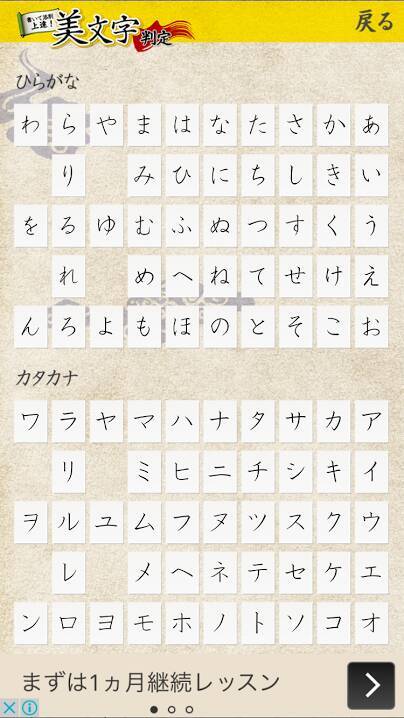 書いて添削
上達!
美文字
判定
戻る
ひらがな
わ ら や ま は な た さ か あ
り み ひ に ち し き い
を る ゆ む ふ ぬ つ す く う
れ め へ ね て せ け え
ん ろ よ も ほ の と そ こ お
カタカナ
ワ ラ ヤ マ ハ ナ タ サ カ ア
リ ミ ヒ ニ チ シ キ イ
ヲ ル ユ ム フ ヌ ツ ス ク ウ
レ メ ヘ ネ テ セ ケ エ
ン ロ ヨ モ ホ ノ ト ソ コ オ
まずは1ヵ月継続レッスン